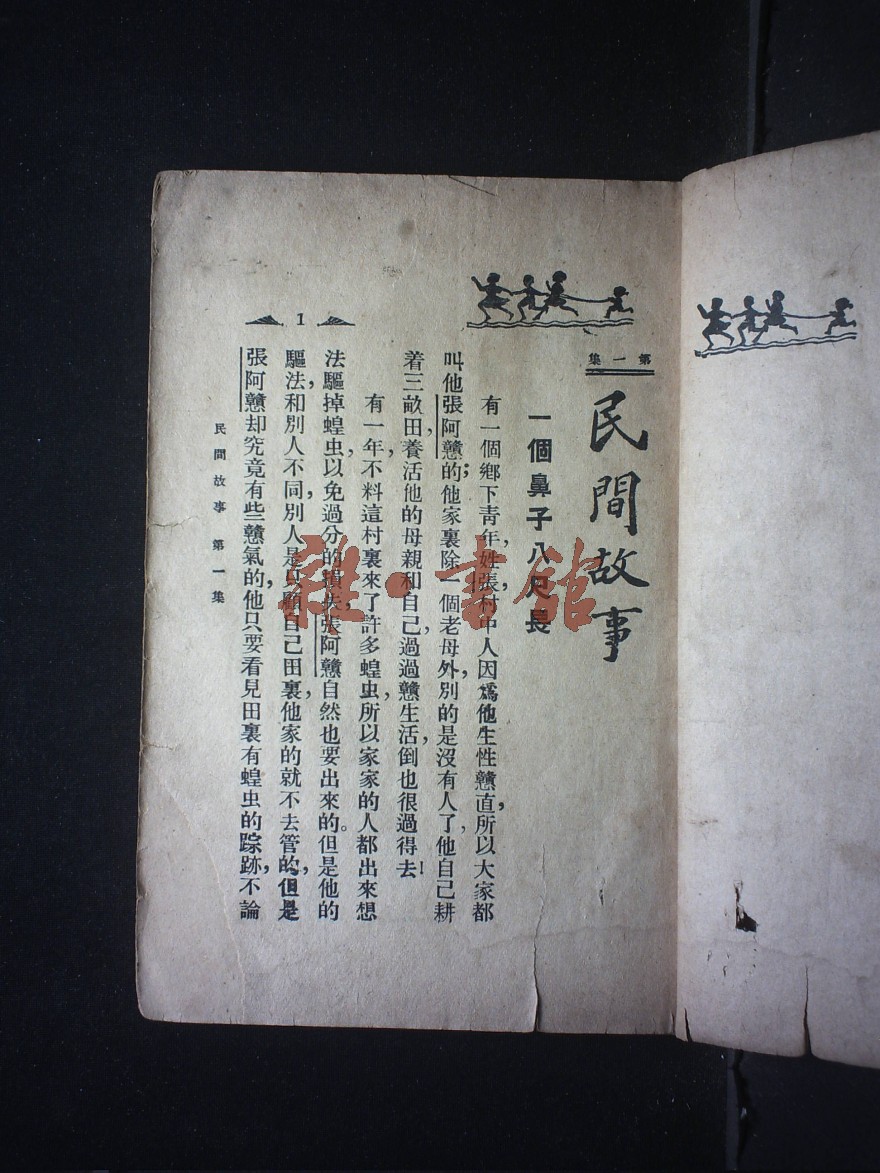 第一集
民間故事
一個鼻子八尺長
有一個鄉下青年，姓張，村中人因爲他生性戇直，所以大家都
叫他張阿戇的；他家裏除一個老母外，別的是沒有人了，他自己耕
着三畝田，養活他的母親和自己，過過戇生活，倒也很過得去！
有一年，不料這村裏來了許多蝗虫，所以家家的人都出來想
法驅掉蝗虫，以免過分的損失，張阿戇自然也要出來的。但是他的
驅法，和別人不同，別人是只顧自己田裏，他家的就不去管的，但是
張阿戇却究竟有些戇氣的，他只要看見田裏有蝗虫的踪跡，不論
民間故事 第一集
1
雜·書館